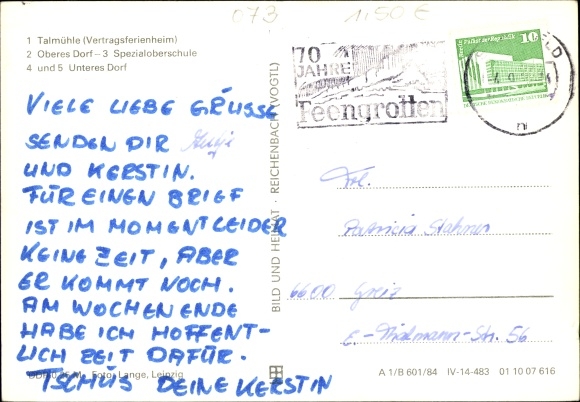 073 1,50 €
1 Talmühle (Vertragsferienheim)
2 Oberes Dorf – 3 Spezialoberschule
4 und 5 Unteres Dorf
70
JAHRE
Feengrotten
10
VIELE LIEBE GRÜSSE
SENDEN DIR
UND KERSTIN.
FÜR EINEN BRIEF
IST IM MOMENT LEIDER
KEINE ZEIT, ABER
ER KOMMT NOCH.
AM WOCHENENDE
HABE ICH HOFFENT-
LICH ZEIT DAFÜR.
TSCHÜß DEINE KERSTIN
Foto: Lange, Leipzig
BILD UND HEIMAT · REICHENBACH (VOGTL)
Frl.
Patricia
6600 Greiz
E.-Thälmann-Str. 56
A 1/B 601/84 IV-14-483 01 10 07 616